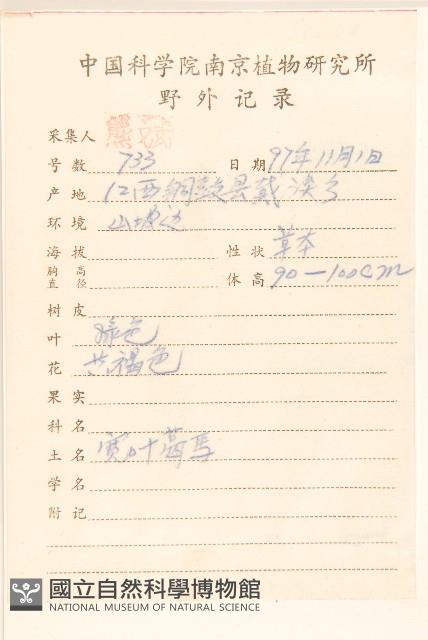 中国科学院南京植物研究所
野外记录
采集人 熊
号数 733 日期 97年11月1日
产地 江西铜鼓县戴 乡
环境 山坡边
海拔 性状 草本
胸高直径 体高 90—100cm
树皮
叶 绿色
花 黄褐色
果实
科名
土名 宽叶
学名
附记
國立自然科學博物館
NATIONAL MUSEUM OF NATURAL SCIENCE